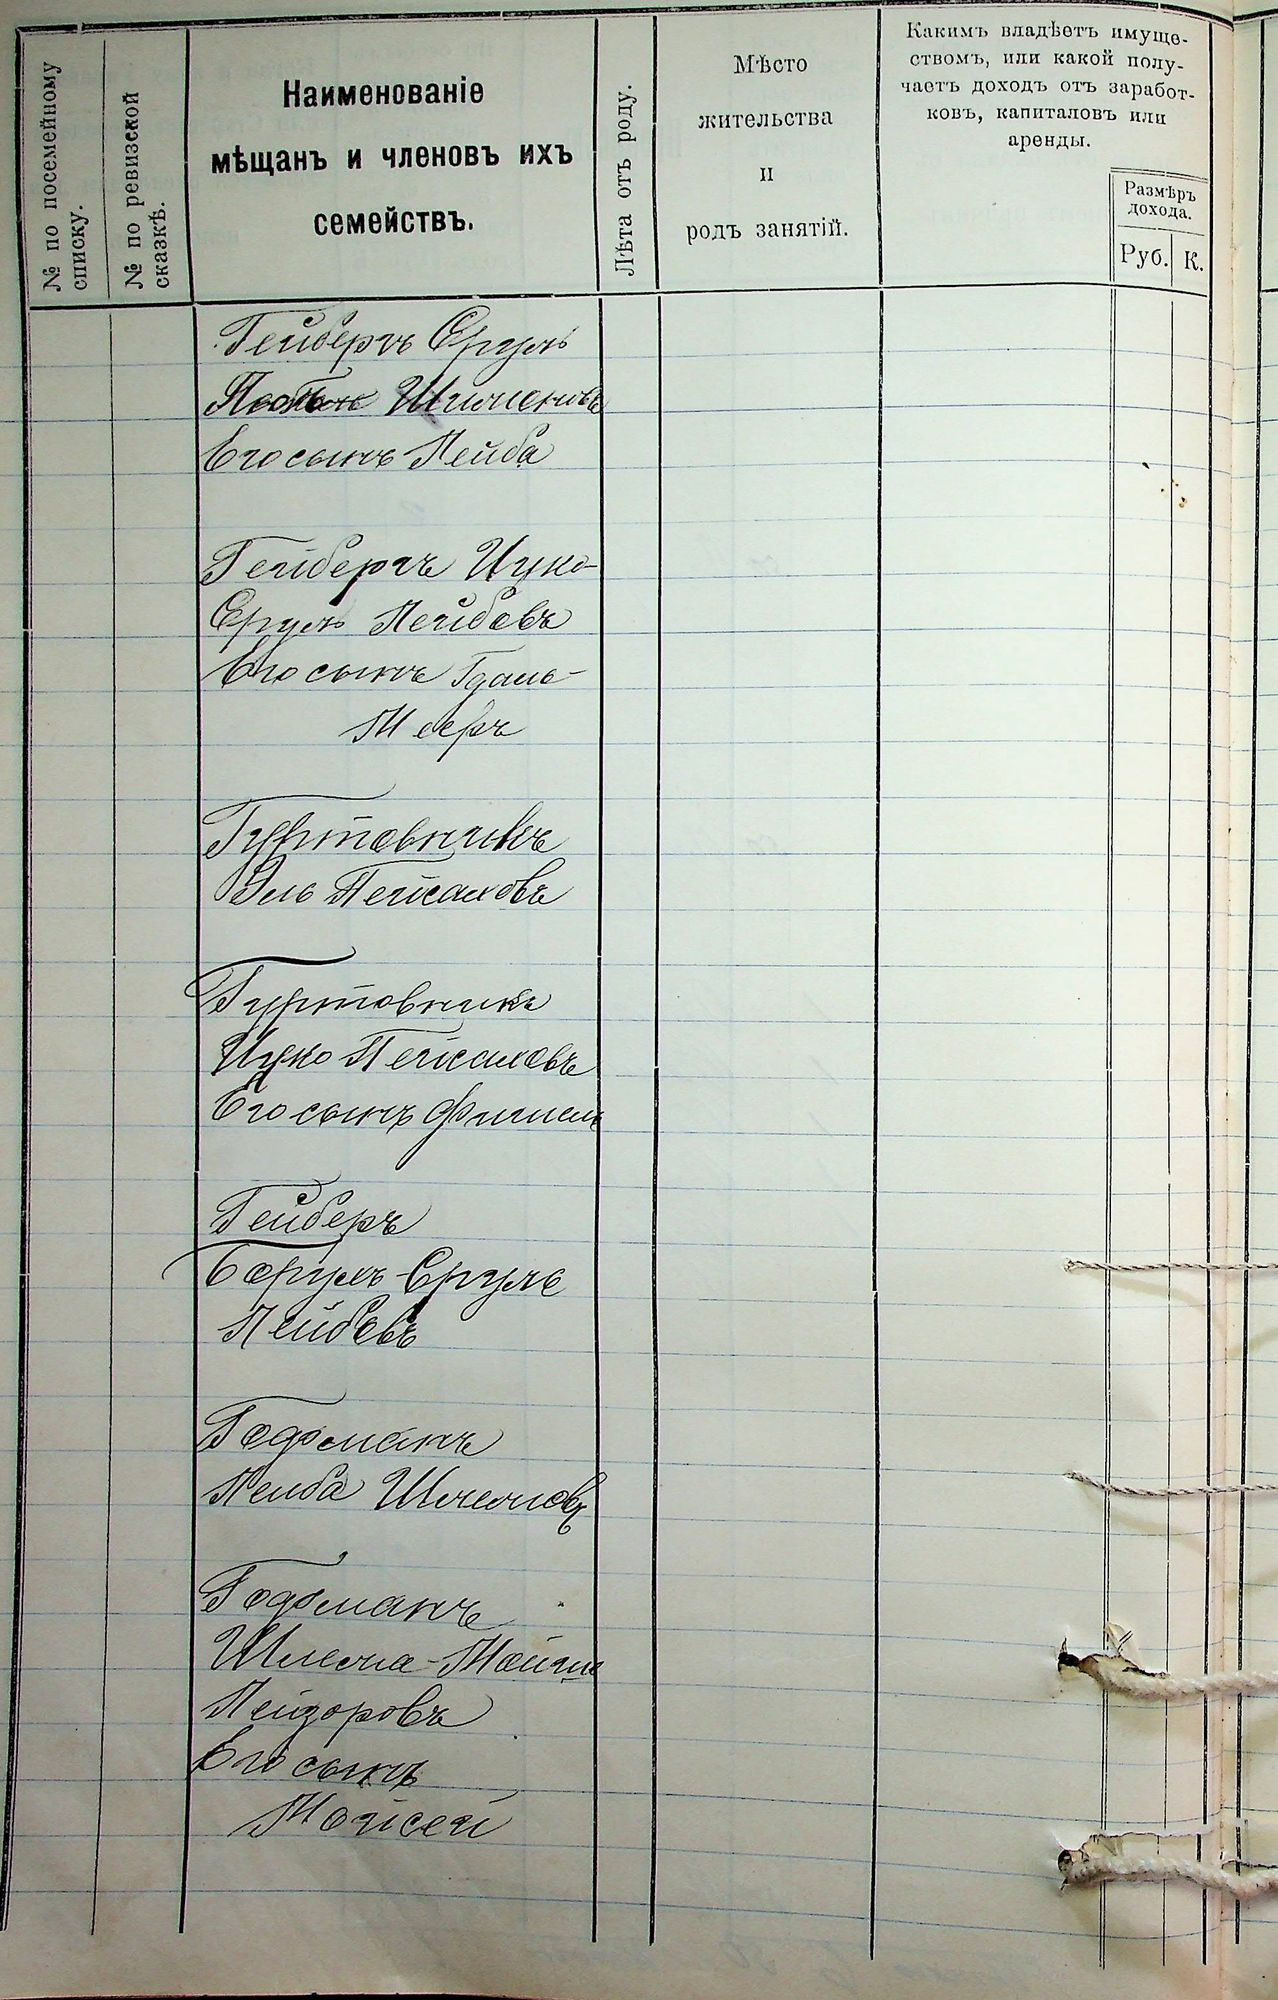 № по посемейному
списку.
№ по ревизской
сказкѣ.
Наименованіе
мѣщанъ и членовъ ихъ
семействъ.
Лѣта отъ роду.
Мѣсто
жительства
и
родъ занятій.
Какимъ владѣетъ имуще-
ствомъ, или какой полу-
чаетъ доходъ отъ заработ-
ковъ, капиталовъ или
аренды.
Размѣръ
дохода.
Руб. К.
Гейберъ Сруль
Его сынъ Лейба
Гейберъ Ицко-
Сруль Лейбовъ
Его сынъ Гдаль-
Мееръ
Гуртовникъ
Эль Пейсаховъ
Гуртовникъ
Ицко Пейсаховъ
Его сынъ Фишель
Гейберъ
Борухъ-Сруль
Лейбовъ
Гофманъ
Лейба Шлемовъ
Гофманъ
Шлема-Мойше
Лейзоровъ
Его сынъ
Мойсей